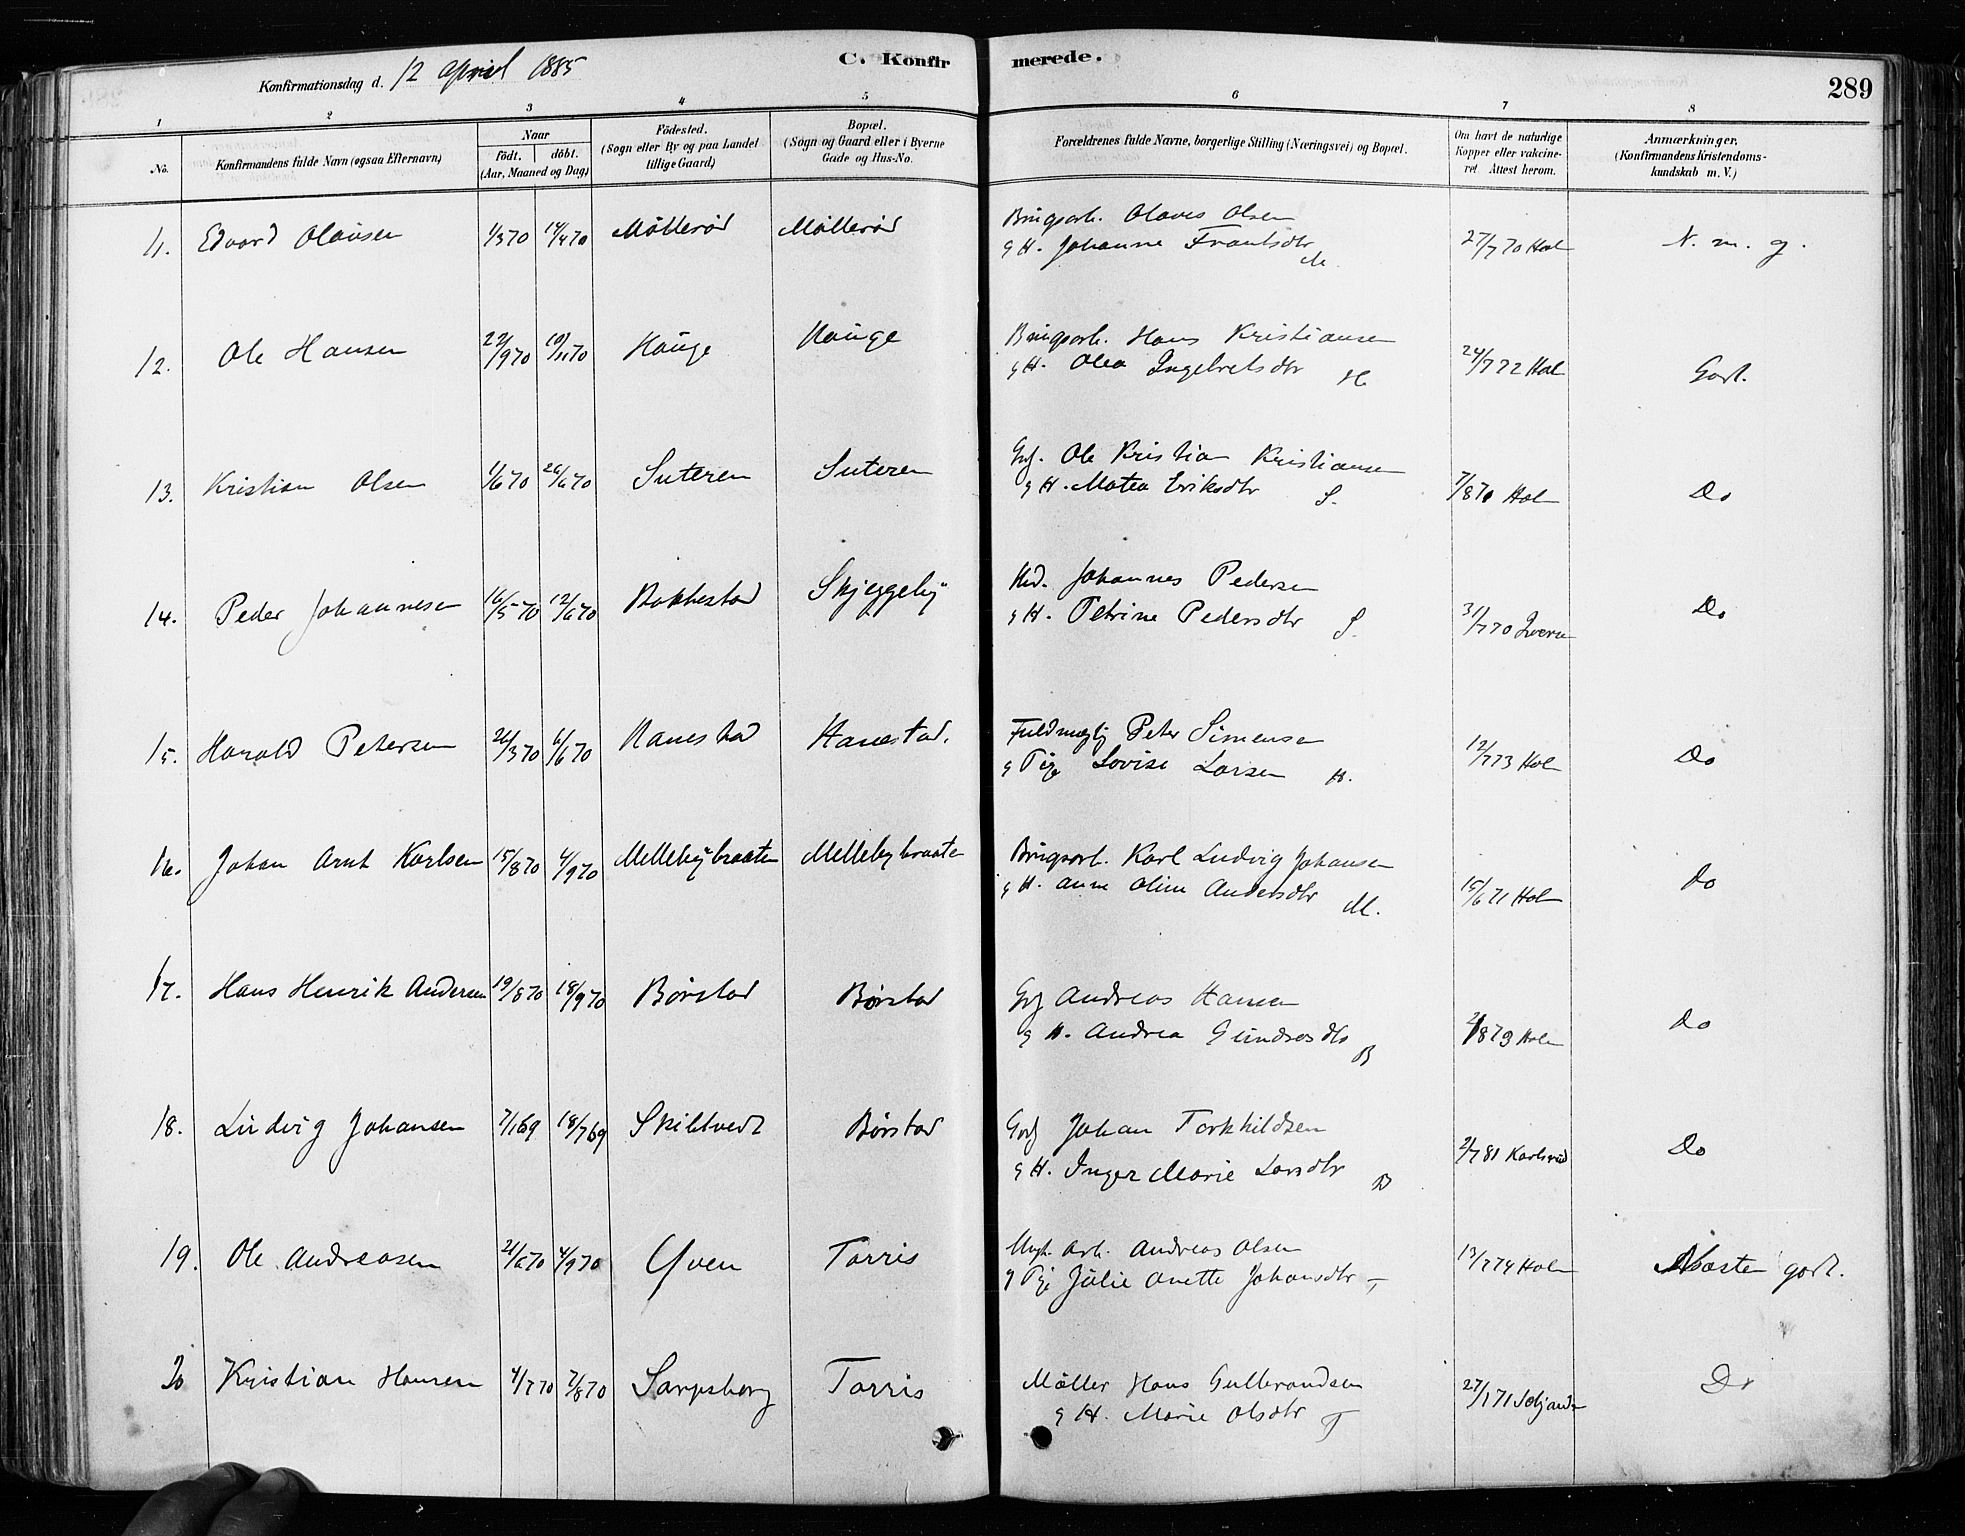 Konfirmationsdag d. 12 April 1885
C. Konfirmerede.
289
1 2 3 4 5 6 7 8
No.
Konfirmandens fulde Navn (ogsaa Efternavn)
Naar
födt. döbt.
(Aar, Maaned og Dag)
Födested.
(Sogn eller By og paa Landet
tillige Gaard)
Bopæl.
(Sogn og Gaard eller i Byerne
Gade og Hus-No.
Forældrenes fulde Navne, borgerlige Stilling (Næringsvei) og Bopæl.
Om havt de naturlige
Kopper eller vakcine-
ret. Attest herom.
Anmærkninger.
(Konfirmandens Kristendoms-
kundskab m. V.)
11. Edvard Olausen 1/3 70 14/4 70 Mölleröd Mölleröd Brugsarb. Olaves Olsen 27/7 70 Hol N. m. g.
g H. Johanne Frantsdtr M.
12. Ole Hansen 22/9 70 10/11 70 Hauge Hauge Brugsarb. Hans Kristiansen 24/7 72 Hol Godt.
g H. Olea Ingebretsdtr H.
13. Kristian Olsen 1/6 70 26/6 70 Suteren Suteren Grf. Ole Kristian Kristiansen 7/8 70 Hol Do
g H. Matea Eriksdtr S.
14. Peder Johannesen 16/5 70 12/6 70 Bakkestad Skjeggeby Johannes Pedersen 31/7 70 Do
g H. Petrine Pedersdtr S.
15. Harald Petersen 26/3 70 6/6 70 Hanestad Hanestad. Fuldmægtig Peter Simensen 12/7 73 Hol Do
g Pige Lovise Larsen H.
16. Johan Arnt Karlsen 15/8 70 4/9 70 Mellebybraaten Mellebybraaten Brugsarb. Karl Ludvig Johansen 15/6 71 Hol Do
g H. Anne Oline Andersdtr M.
17. Hans Henrik Andersen 19/8 70 18/9 70 Börstad Börstad Grf Andreas Hansen 2/8 73 Hol Do
g H. Andrea Gundersdtr B
18. Ludvig Johansen 7/1 69 18/7 69 Skiltvedt Börstad Grf Johan Torkhildsen 2/7 81 Karlsrud Do
g H. Inger Marie Larsdtr B
19. Ole Andreasen 21/6 70 4/9 70 Yven Torris Ungk. Arb. Andreas Olsen 13/7 74 Hol Næsten godt.
g Pige Julie Anette Johansdtr T
20 Kristian Hansen 4/7 70 7/8 70 Sarpsborg Torris Möller Hans Gulbrandsen 27/1 71 Do
g H. Marie Olsdtr T